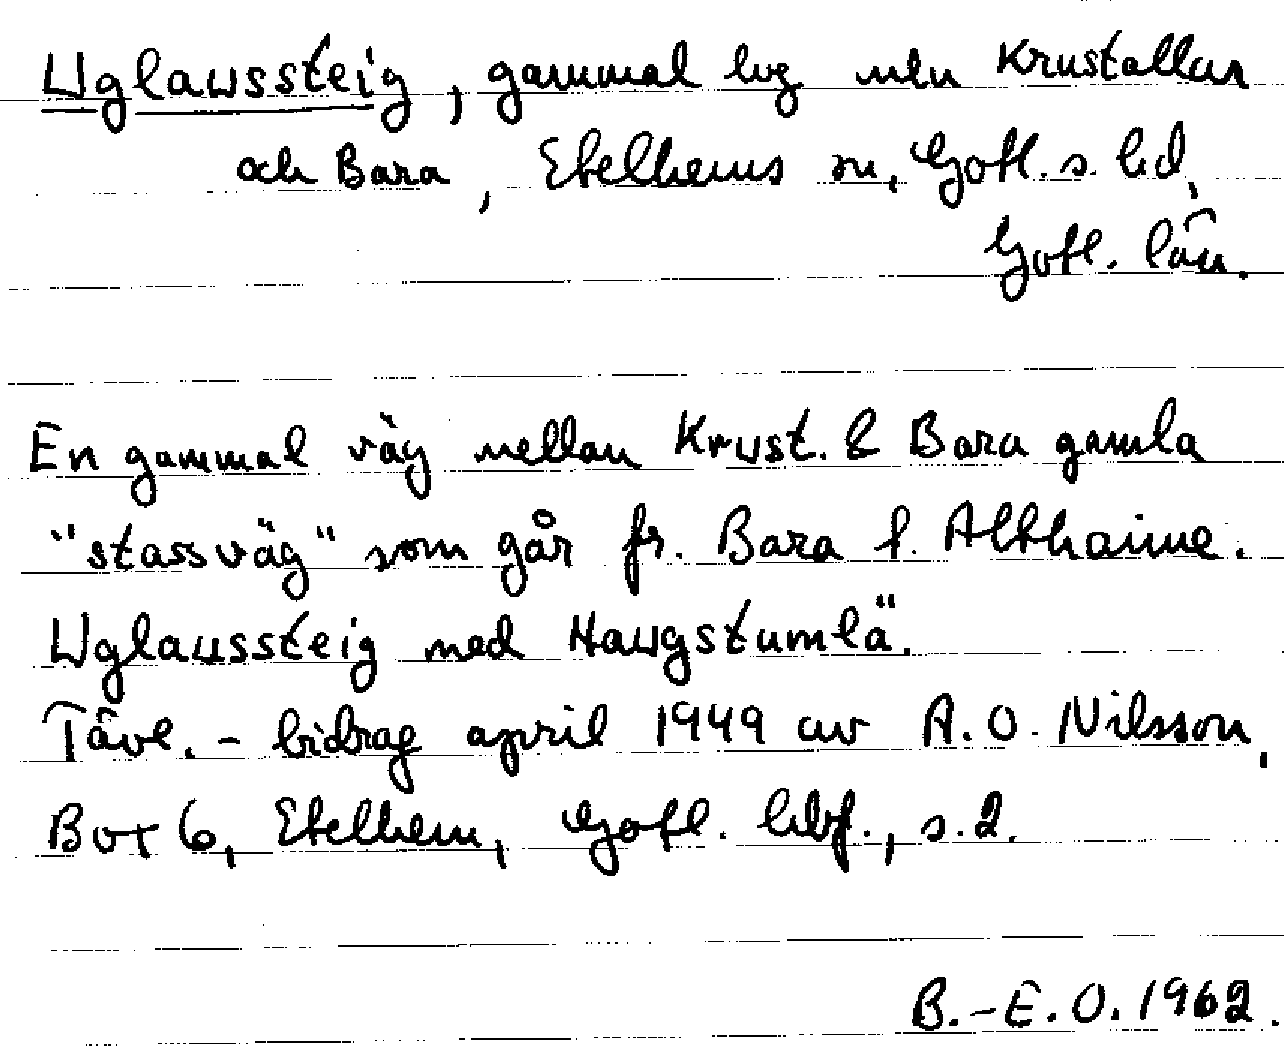 Uglaussteig, gammal lvg mln Krustallar
och Bara, Etelhems sn, Gotl. s. hd,
Gotl. län.
En gammal väg mellan Krust. & Bara gamla
"stassväg" som går fr. Bara t. Althaime.
Uglaussteig med Haugstumlä".
Tävl. - bidrag april 1949 av A. O. Nilsson,
Box 6, Etelhem, Gotl. hbf., s. 2.
B.-E. O. 1962.